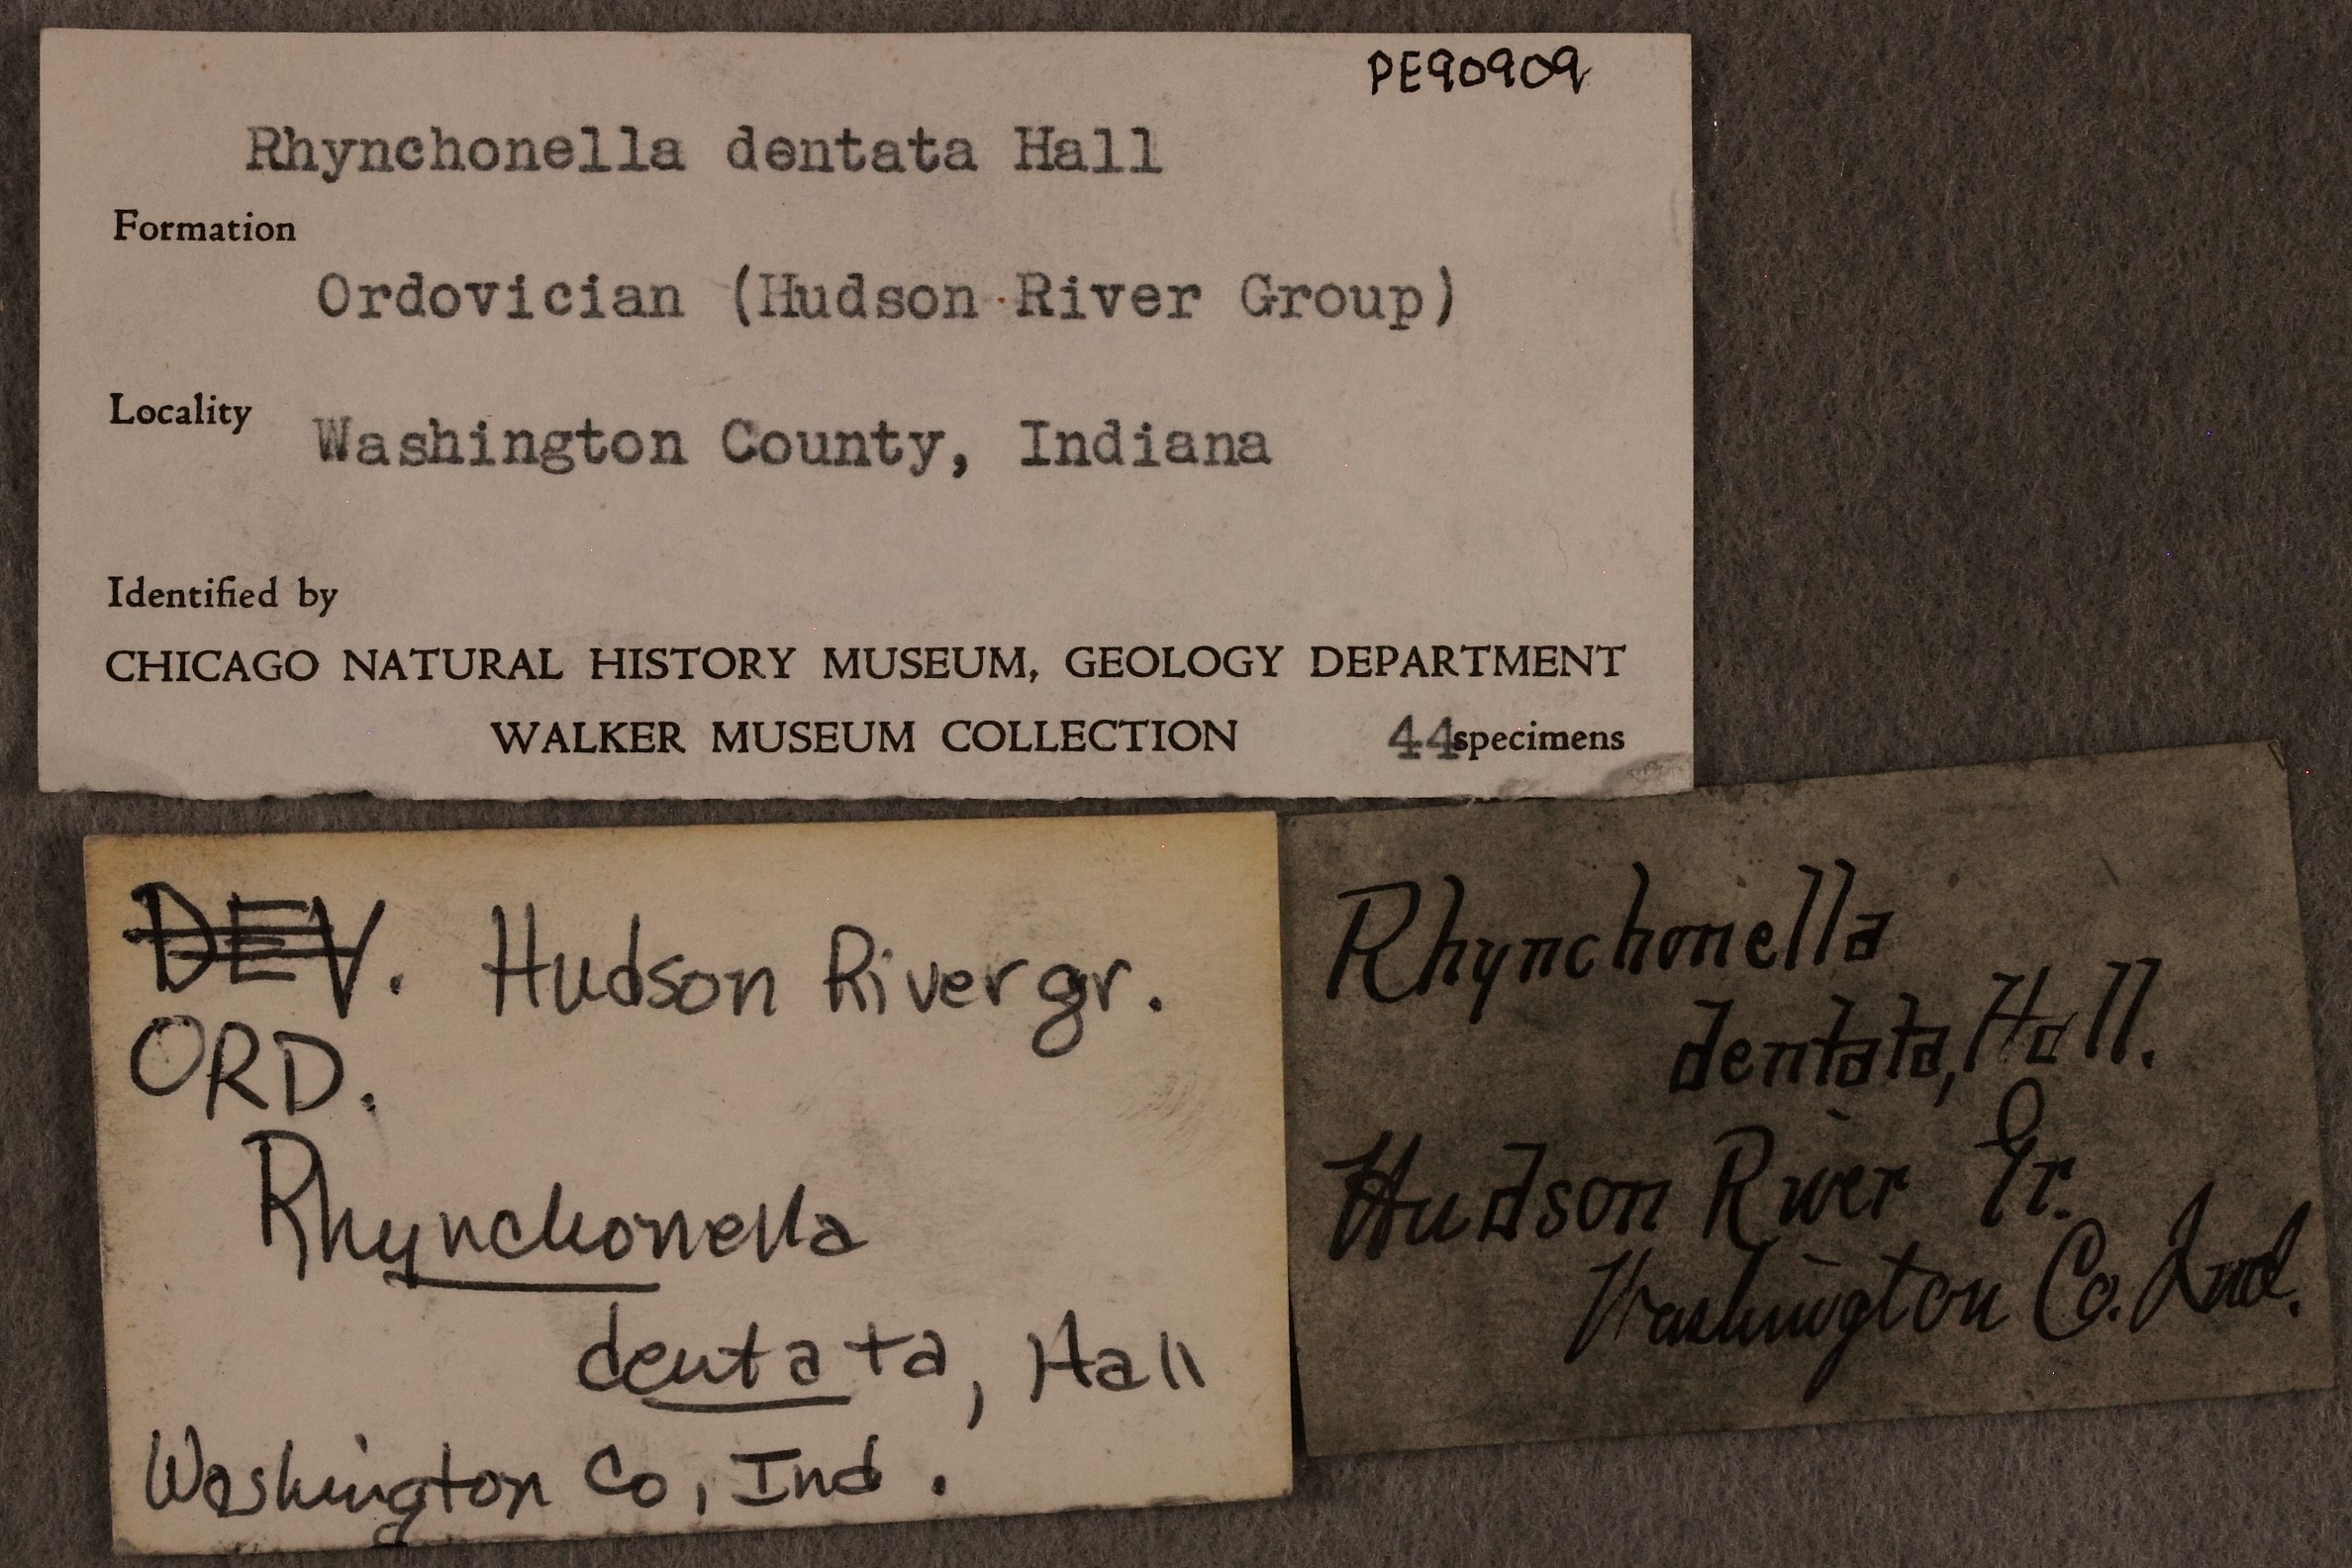 PE90909
Rhynchonella dentata Hall
Formation
Ordovician (Hudson River Group)
Locality
Washington County, Indiana
Identified by
CHICAGO NATURAL HISTORY MUSEUM, GEOLOGY DEPARTMENT
WALKER MUSEUM COLLECTION 44 specimens
DEV. Hudson River gr.
ORD.
Rhynchonella
dentata, Hall
Washington Co, Ind.
Rhynchonella
dentata, Hall.
Hudson River Gr.
Washington Co. Ind.